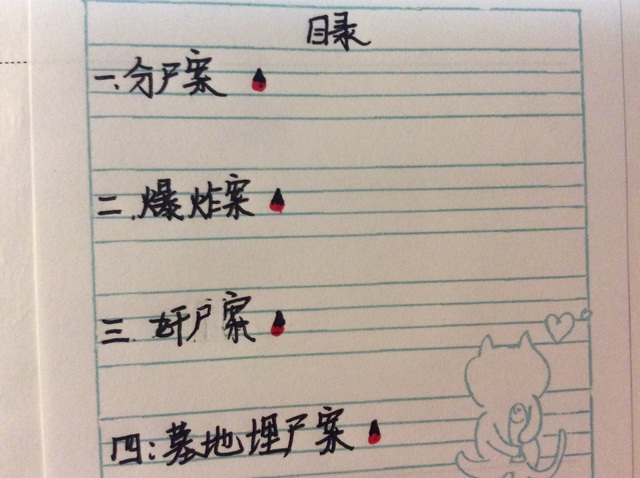 目录
一、分尸案
二、爆炸案
三、奸尸案
四：墓地埋尸案